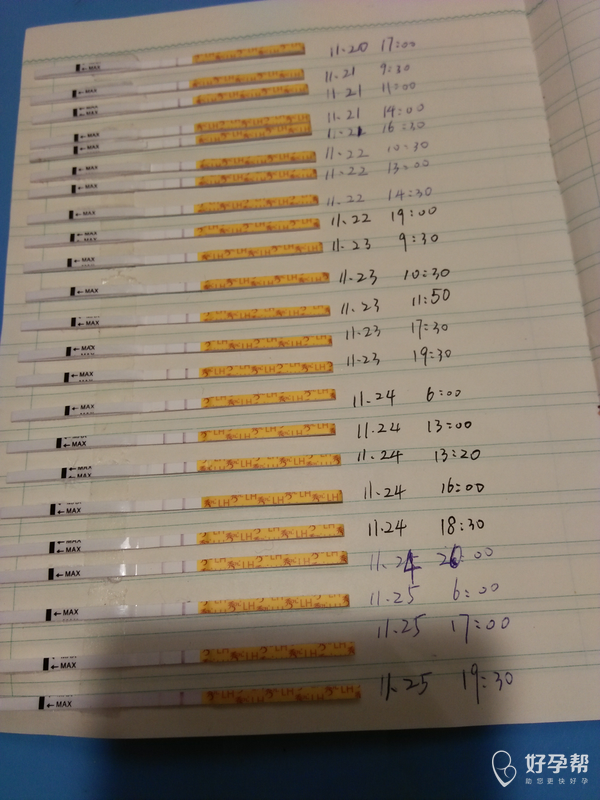 11.20 17:00
← MAX
11.21 9:30
← MAX
11.21 11:00
← MAX
11.21 14:00
← MAX
11.21 16:30
← MAX
11.22 10:30
← MAX
11.22 13:00
← MAX
11.22 14:30
← MAX
11.22 19:00
← MAX
11.23 9:30
← MAX
11.23 10:30
← MAX
11.23 11:50
← MAX
11.23 17:30
← MAX
11.23 19:30
← MAX
11.24 6:00
← MAX
11.24 13:00
← MAX
11.24 13:20
← MAX
11.24 16:00
← MAX
11.24 18:30
← MAX
11.24 :00
← MAX
11.25 6:00
← MAX
11.25 17:00
← MAX
11.25 19:30
← MAX
好孕帮
助您更快好孕